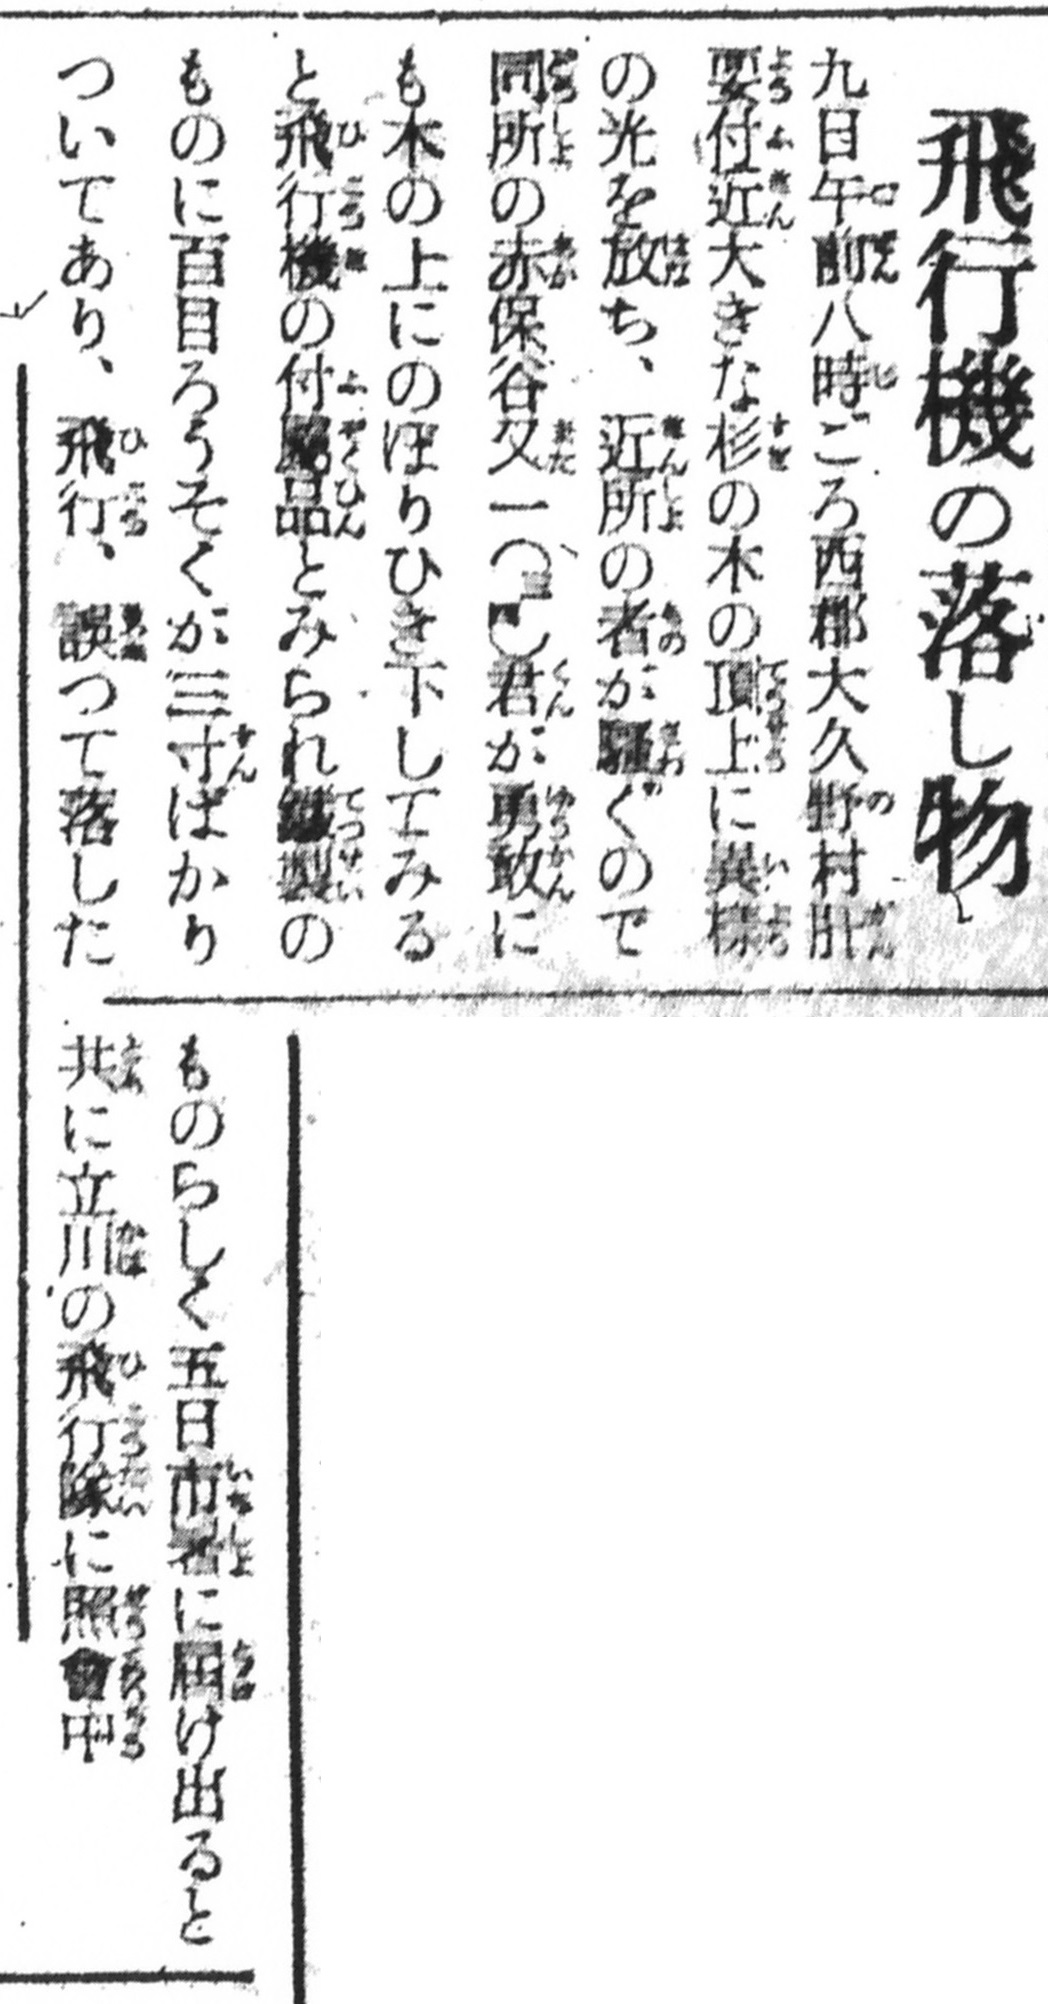 飛行機の落し物
九日午前八時ごろ西郡大久野村肝
要付近大きな杉の木の頂上に異様
の光を放ち、近所の者が騒ぐので
同所の赤保谷又一(　)君が勇敢に
も木の上にのぼりひき下してみる
と飛行機の付属品とみられ鉄製の
ものに百目ろうそくが三寸ばかり
ついてあり、飛行、誤つて落した
ものらしく五日市署に届け出ると
共に立川の飛行隊に照會中